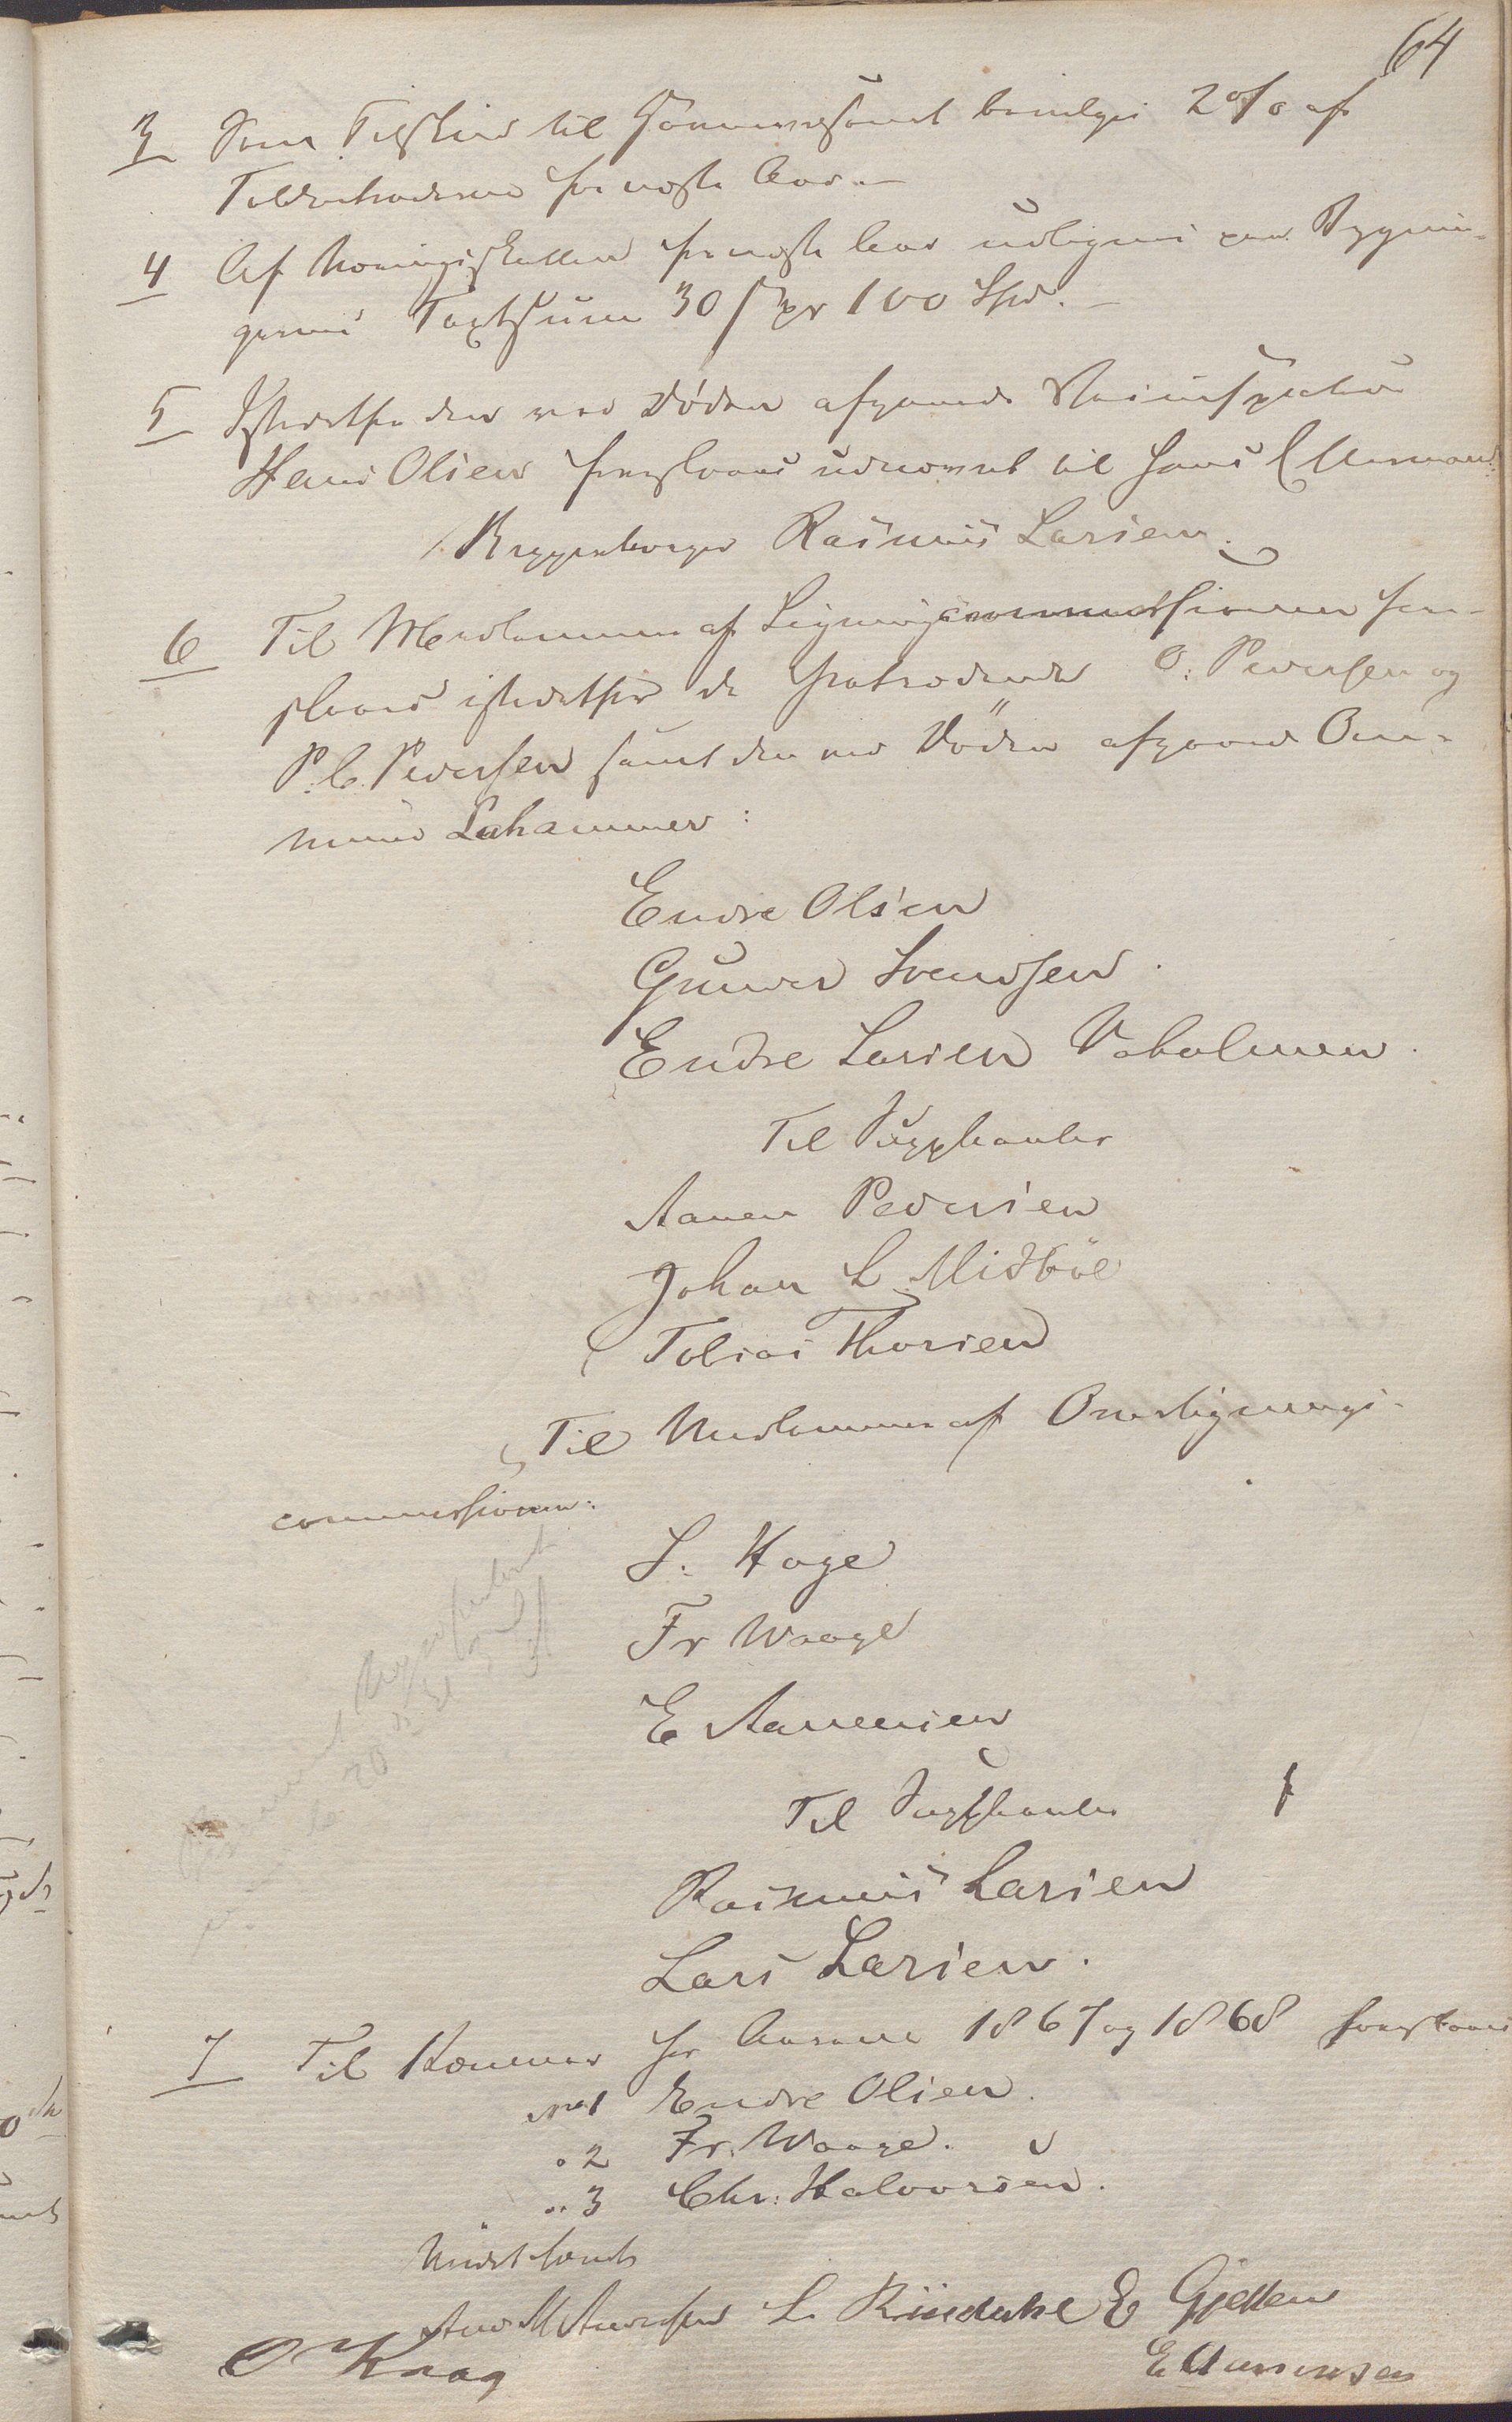 64
3 Som Tilskud til Havnevæsenet bevilges 2 o/o af
Toldintraderne for næste Aar.—
4 Af Næringsskatten for næste Aar udlignes paa Bygnin-
gernes Taxtsum 30 s pr 100 Spd.—
5 Istedetfor den ved Døden afgaaede Veiinspecteur
Hans Olsen foreslaaes udnævnt til hans Eftermand:
Reppenhagen Rasmus Larsen.
6 Til Medlemmer af Ligningscommissionen fore-
slaaes istedetfor de fratrædende O. Pedersen og
P. C. Pedersen samt den ved Døden afgaaede Om-
mund Lahammer:
Endre Olsen
Gunder Svendsen.
Endre Larsen Vaholmen.
Til Suppleanter
Aanen Pedersen
Johan L. Midbøe
Tobias Thorsen
Til Medlemmer af Overlignings-
commissionen:
S. Hage
Fr Waage
E Aanensen
Til Suppleanter
Rasmus Larsen
Lars Larsen.
7 Til Kæmner for Aarene 1867 og 1868 foreslaaes
No 1 Endre Olsen.
" 2 Fr. Waage.
" 3 Chr: Halvorsen.
Mødet hævet
And M Andersen L. Riisdahl E Gjessen
O Krag
E Aanensen